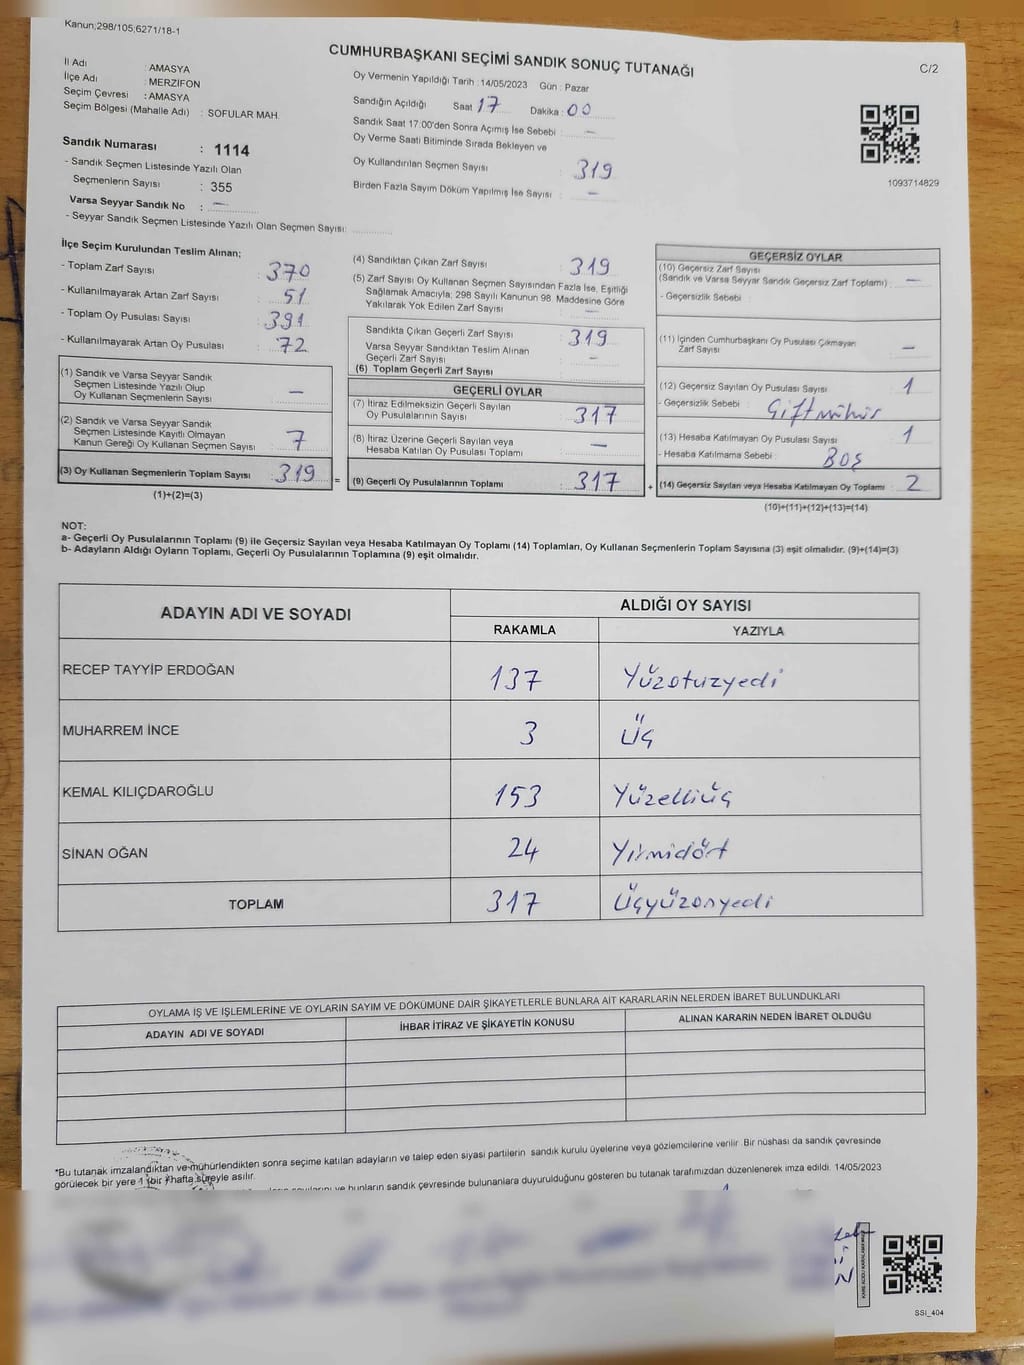 Kanun;298/105;6271/18-1
CUMHURBAŞKANI SEÇİMİ SANDIK SONUÇ TUTANAĞI
C/2
İl Adı : AMASYA
İlçe Adı : MERZİFON
Seçim Çevresi : AMASYA
Seçim Bölgesi (Mahalle Adı) : SOFULAR MAH.
Sandık Numarası : 1114
- Sandık Seçmen Listesinde Yazılı Olan
Seçmenlerin Sayısı : 355
Varsa Seyyar Sandık No : —
- Seyyar Sandık Seçmen Listesinde Yazılı Olan Seçmen Sayısı:
Oy Vermenin Yapıldığı Tarih : 14/05/2023 Gün : Pazar
Sandığın Açıldığı Saat 17 Dakika : 00
Sandık Saat 17:00'den Sonra Açımış İse Sebebi : —
Oy Verme Saati Bitiminde Sırada Bekleyen ve
Oy Kullandırılan Seçmen Sayısı : 319
Birden Fazla Sayım Döküm Yapılmış İse Sayısı : —
1093714829
İlçe Seçim Kurulundan Teslim Alınan;
- Toplam Zarf Sayısı : 370
- Kullanılmayarak Artan Zarf Sayısı : 51
- Toplam Oy Pusulası Sayısı : 391
- Kullanılmayarak Artan Oy Pusulası : 72
(1) Sandık ve Varsa Seyyar Sandık
Seçmen Listesinde Yazılı Olup
Oy Kullanan Seçmenlerin Sayısı : —
(2) Sandık ve Varsa Seyyar Sandık
Seçmen Listesinde Kayıtlı Olmayan
Kanun Gereği Oy Kullanan Seçmen Sayısı : 7
(3) Oy Kullanan Seçmenlerin Toplam Sayısı : 319 =
(1)+(2)=(3)
(4) Sandıktan Çıkan Zarf Sayısı : 319
(5) Zarf Sayısı Oy Kullanan Seçmen Sayısından Fazla İse, Eşitliği
Sağlamak Amacıyla; 298 Sayılı Kanunun 98. Maddesine Göre
Yakılarak Yok Edilen Zarf Sayısı : —
Sandıkta Çıkan Geçerli Zarf Sayısı : 319
Varsa Seyyar Sandıktan Teslim Alınan
Geçerli Zarf Sayısı : -
(6) Toplam Geçerli Zarf Sayısı
GEÇERLİ OYLAR
(7) İtiraz Edilmeksizin Geçerli Sayılan
Oy Pusulalarının Sayısı : 317
(8) İtiraz Üzerine Geçerli Sayılan veya
Hesaba Katılan Oy Pusulası Toplamı : —
(9) Geçerli Oy Pusulalarının Toplamı : 317 +
GEÇERSİZ OYLAR
(10) Geçersiz Zarf Sayısı
(Sandık ve Varsa Seyyar Sandık Geçersiz Zarf Toplamı) : —
- Geçersizlik Sebebi :
(11) İçinden Cumhurbaşkanı Oy Pusulası Çıkmayan
Zarf Sayısı : —
(12) Geçersiz Sayılan Oy Pusulası Sayısı : 1
- Geçersizlik Sebebi : Çift mühür
(13) Hesaba Katılmayan Oy Pusulası Sayısı : 1
- Hesaba Katılmama Sebebi : Boş
(14) Geçersiz Sayılan veya Hesaba Katılmayan Oy Toplamı : 2
(10)+(11)+(12)+(13)=(14)
NOT:
a- Geçerli Oy Pusulalarının Toplamı (9) ile Geçersiz Sayılan veya Hesaba Katılmayan Oy Toplamı (14) Toplamları, Oy Kullanan Seçmenlerin Toplam Sayısına (3) eşit olmalıdır. (9)+(14)=(3)
b- Adayların Aldığı Oyların Toplamı, Geçerli Oy Pusulalarının Toplamına (9) eşit olmalıdır.
ADAYIN ADI VE SOYADI
ALDIĞI OY SAYISI
RAKAMLA YAZIYLA
RECEP TAYYİP ERDOĞAN 137 Yüzotuzyedi
MUHARREM İNCE 3 Üç
KEMAL KILIÇDAROĞLU 153 Yüzelliüç
SİNAN OĞAN 24 Yirmidört
TOPLAM 317 Üçyüzonyedi
OYLAMA İŞ VE İŞLEMLERİNE VE OYLARIN SAYIM VE DÖKÜMÜNE DAİR ŞİKAYETLERLE BUNLARA AİT KARARLARIN NELERDEN İBARET BULUNDUKLARI
ADAYIN ADI VE SOYADI İHBAR İTİRAZ VE ŞİKAYETİN KONUSU ALINAN KARARIN NEDEN İBARET OLDUĞU
*Bu tutanak imzalandıktan ve mühürlendikten sonra seçime katılan adayların ve talep eden siyasi partilerin sandık kurulu üyelerine veya gözlemcilerine verilir. Bir nüshası da sandık çevresinde
görülecek bir yere 1 (bir) hafta süreyle asılır.
ve bunların sandık çevresinde bulunanlara duyurulduğunu gösteren bu tutanak tarafımızdan düzenlenerek imza edildi. 14/05/2023
SSİ_404